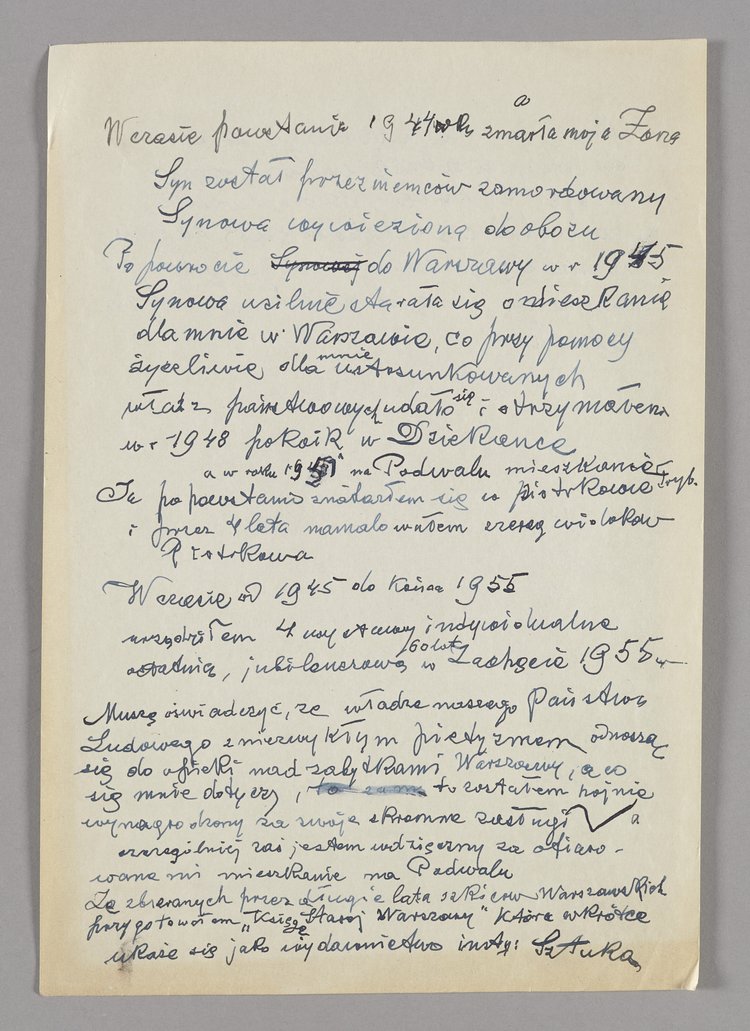 W czasie powstania 1944 zmarła moja Żona
a
Syn został przez niemców zamordowany
Synowa wywieziona do obozu
Po powrocie Synowej do Warszawy w r 1945
Synowa usilnie starała się o mieszkanie
dla mnie w Warszawie, co przy pomocy
życzliwie dla mnie ustosunkowanych
władz państwowych udało się i otrzymałem
w r 1948 pokoik w Dziekance
a w roku na Podwalu mieszkanie
Ja po powstaniu znalazłem się w Piotrkowie Tryb.
i przez 4 lata namalowałem szereg widoków
Piotrkowa
W czasie od 1945 do końca 1955
urządziłem 4 wystawy indywidualne
ostatnią, jubileuszową 60 lat w Zachęcie 1955 r
Muszę oświadczyć, że władze naszego Państwa
Ludowego z niezwykłym pietyzmem odnoszą
się do opieki nad zabytkami Warszawy, a co
się mnie dotyczy, to zostałem hojnie
wynagrodzony za swoje skromne zasługi a
szczególniej zaś jestem wdzięczny za ofiaro-
wane mi mieszkanie na Podwalu
Ze zbieranych przez długie lata szkiców Warszawskich
przygotowałem „Księgę Starej Warszawy" która wkrótce
ukaże się jako wydawnictwo inst: Sztuka